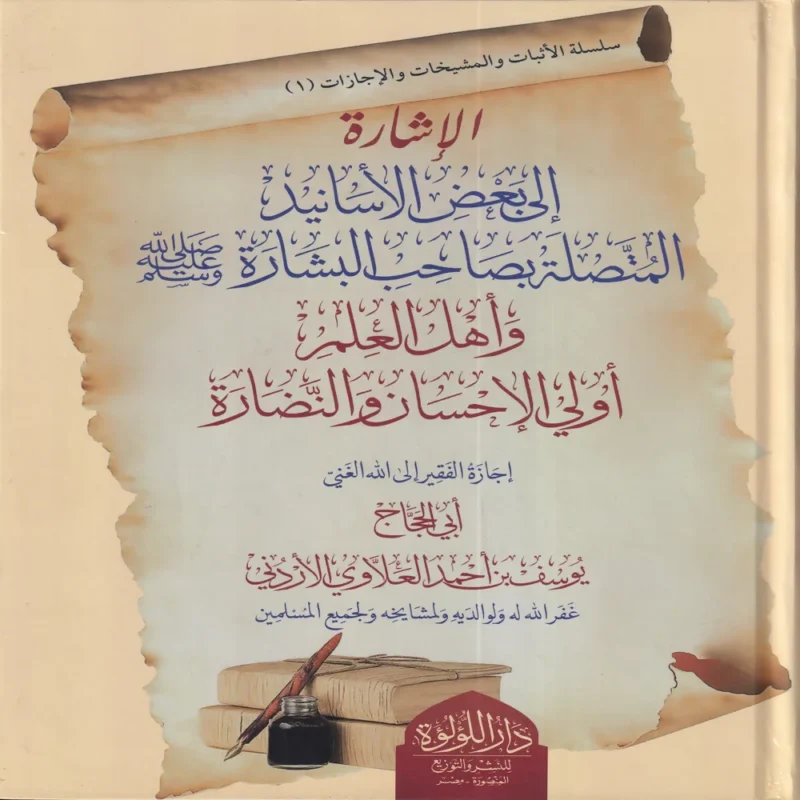 سلسلة الأثبات والمشيخات والإجازات (١)
الإشارة
إلى بَعْضِ الأسانيد
المُتَّصلَة بصَاحِبِ البشَارَة صَلَّى اللَّه عَلَيْهِ وَسَلَّم
وَأهْل العِلمِ
أولي الإحْسَان والنَّضَارَة
إجَازَةُ الفَقِير إلى الله الغَنِيّ
أبي الحَجَّاج
يُوسُف بن أحمَد العَلَّاوي الأردُني
غَفَر الله له وَلوالديهِ وَلمشَايخه وَلجَميع المسْلمِين
دَارُ اللؤلؤة
للنشْر والتَّوزيع
المنصُورَة - مصْر